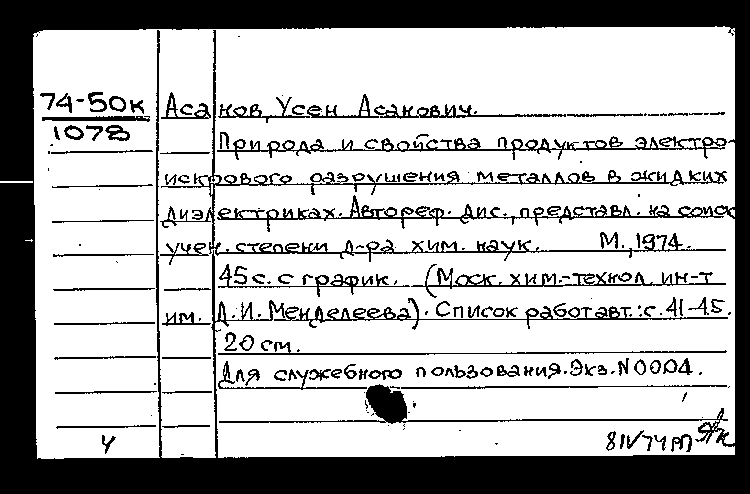 74-50к
1078
Асанов, Усен Асанович.
Природа и свойства продуктов электро-
искрового разрушения металлов в жидких
диэлектриках. Автореф. дис., представл. на соиск.
учен. степени д-ра хим. наук. М., 1974.
45 с. с график. (Моск. хим.-технол. ин-т
им. Д. И. Менделеева). Список работ авт.: с. 41-45.
20 см.
Для служебного пользования. Экз. N 0004.
Ч
8 IV 74